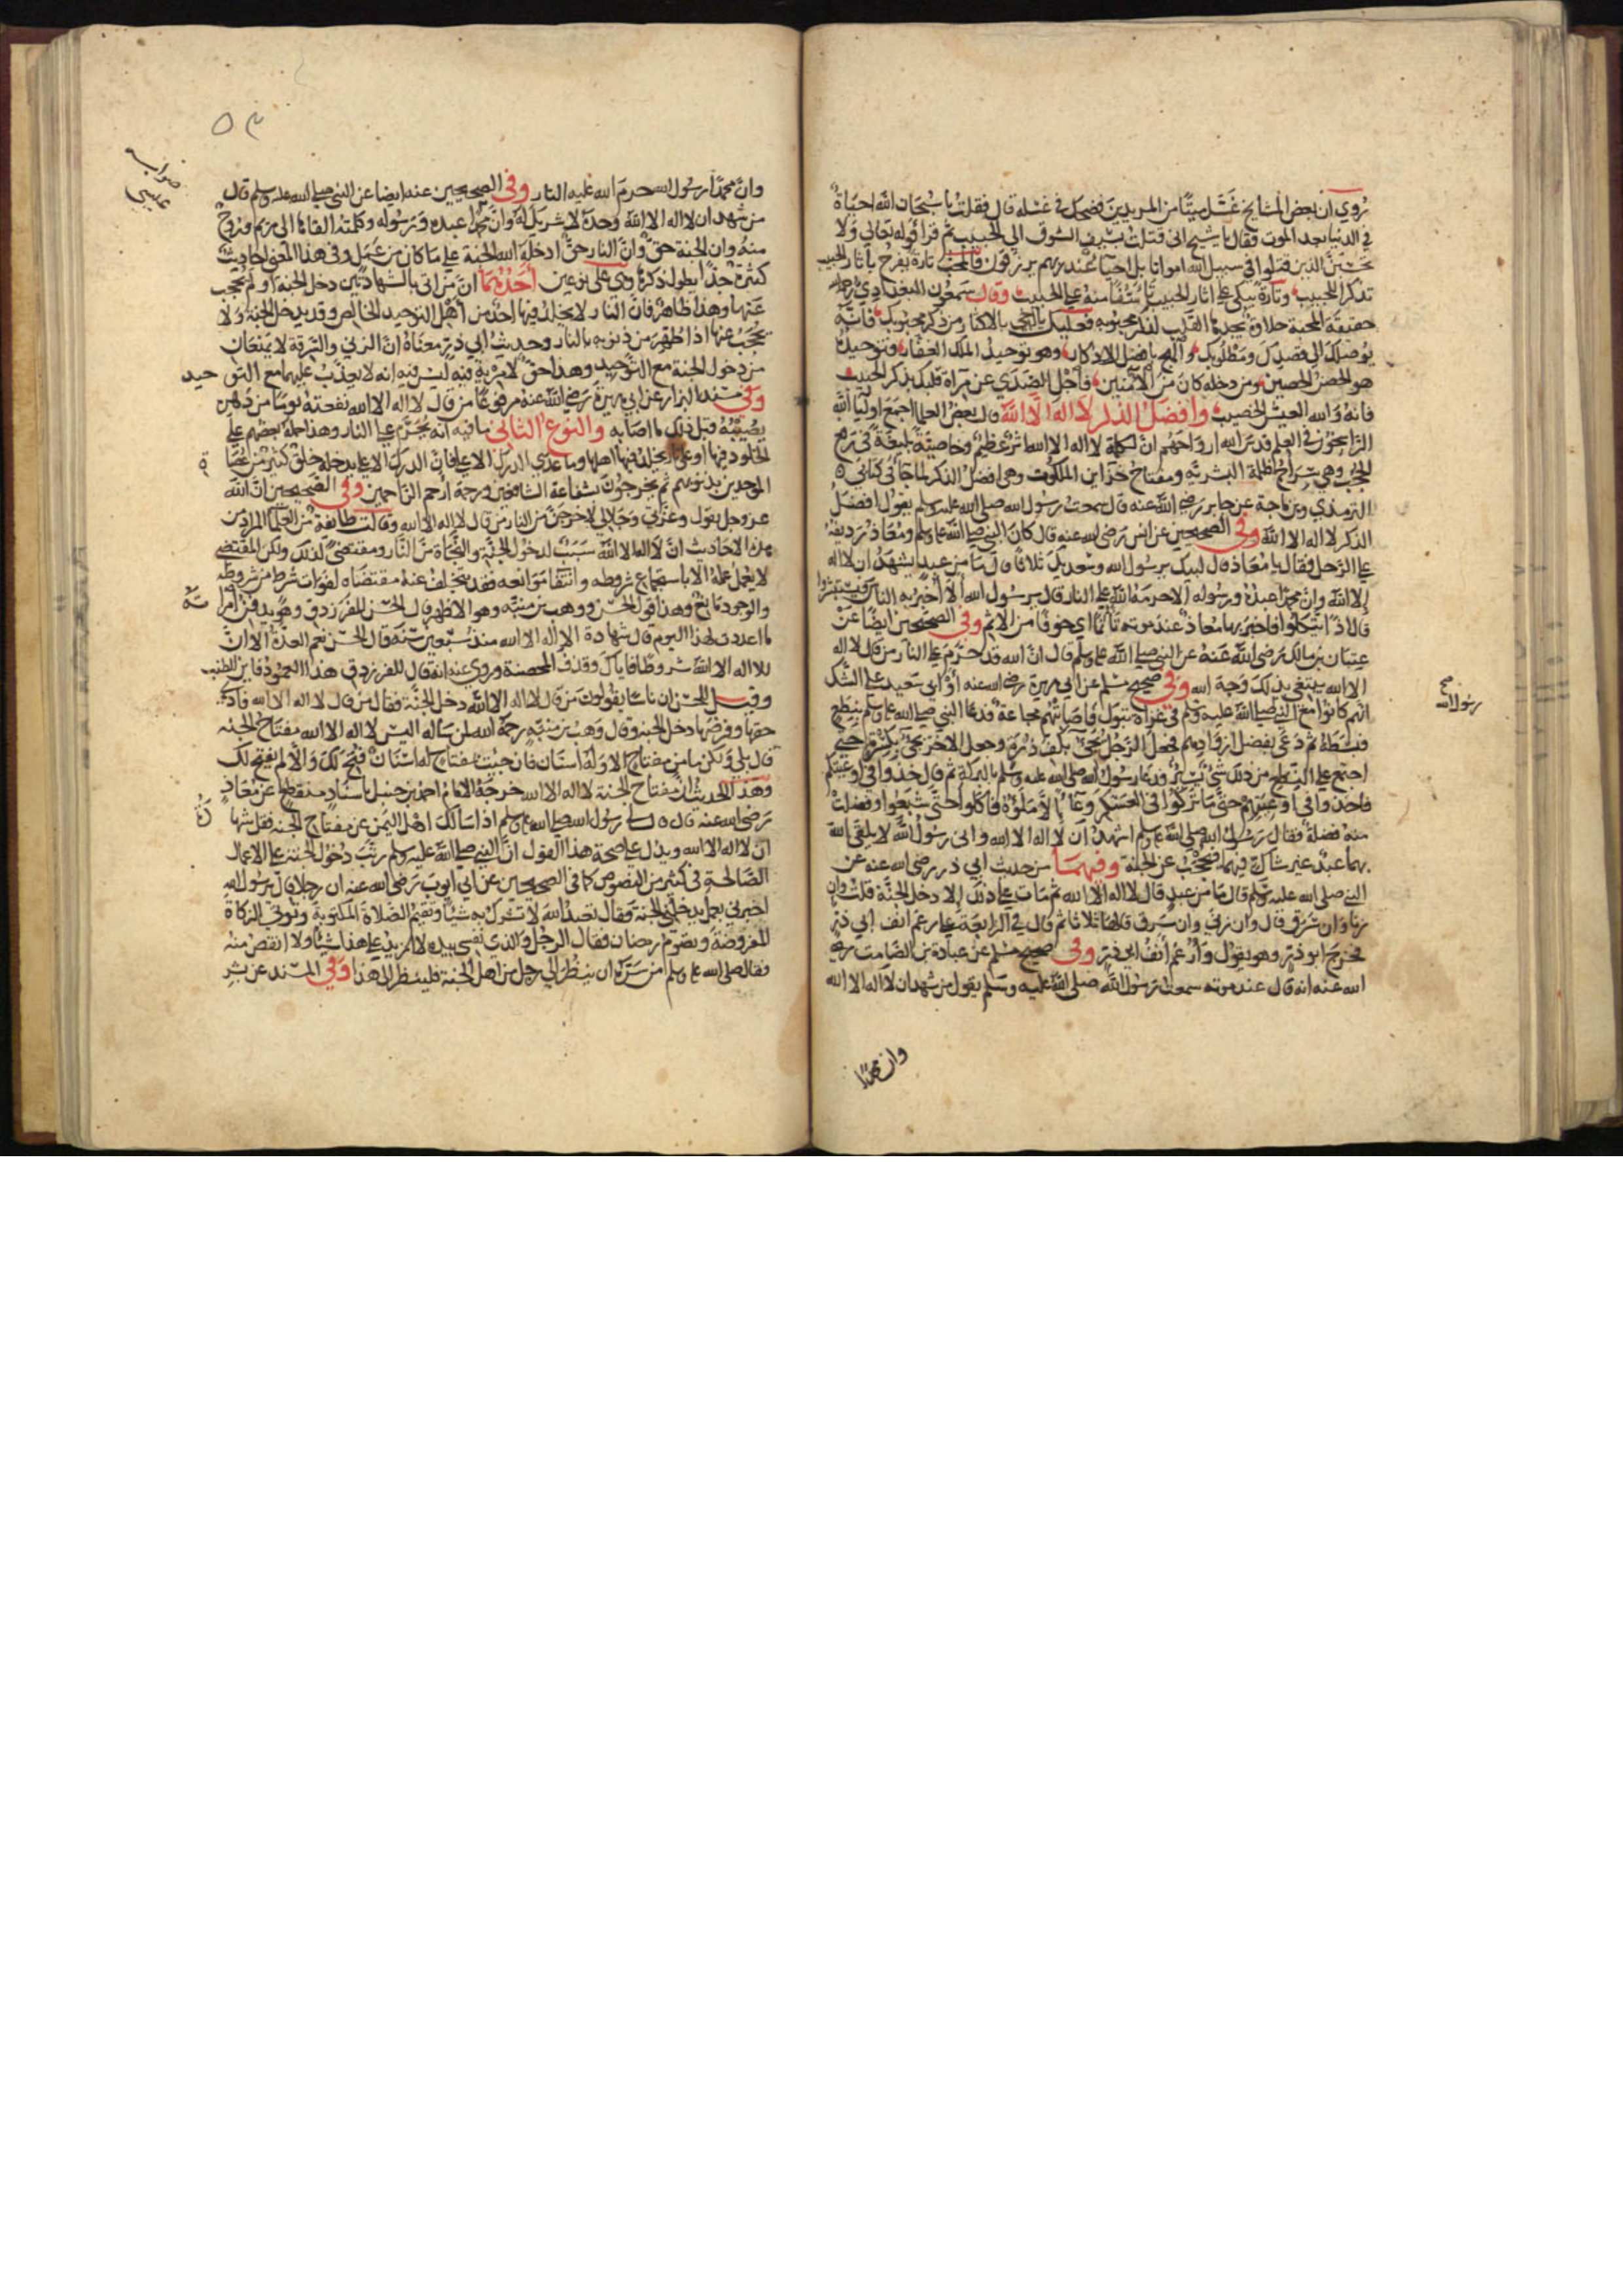 روي ان بعض المشايخ غسّل ميتًا من المريدين فضحك في غسله قال فقلت يا سبحان الله احياة
في الدنيا بعد الموت فقال يا شيخ اني قتلت بسيف الشوق الي الحبيب ثم قرأ قوله تعالي ولا
تحسبن الذين قتلوا في سبيل الله امواتا بل احياء عند ربهم يرزقون فالمحب تارة يفرح بآثار الحبيب
تذكرا للحبيب وتارة يبكي علي آثار الحبيب تأسفًا منه علي الحبيب وقال سمعون البغدادي رحمه الله
حقيقة المحبة حلاوة يجدها القلب لذكر محبوبه فعليك يا اخي بالاكثار من ذكر محبوبك فانه
يوصلك الي قصدك ومطلوبك والهج بافضل الاذكار وهو توحيد الملك الغفار وتوحيده
هو الحصن الحصين ومن دخله كان من الآمنين فأجل الصدي عن مرآة قلبك بذكر الحبيب
فانه والله العيش الخصيب وافضل الذكر لا اله الا الله قال بعض العلما اجمع اوليا الله
الراسخون في العلم قدس الله ارواحهم ان لكلمة لا اله الا الله اثر عظيم وخاصية بليغة في رفع
الحجب وهي سراج لظلمة البشرية ومفتاح خزاين الملكوت وهي افضل الذكر لما جا في كتابي
الترمذي وبن ماجة عن جابر رضي الله عنه قال سمعت رسول الله صلي الله عليه وسلم يقول افضل
الذكر لا اله الا الله وفي الصحيحين عن انس رضي الله عنه قال كان النبي صلي الله عليه وسلم ومعاذ رديفه
علي الرحل فقال يا معاذ قال لبيك يرسول الله وسعديك ثلاثا قال ما من عبد يشهد ان لا اله
الا الله وان محمدًا عبده ورسوله الا حرمه الله علي النار قال يرسول الله الا اخبر به الناس فيستبشروا
قال اذًا يتكلوا فاخبر بها معاذ عند موته تأثمًا اي خوفًا من الاثم وفي الصحيحين ايضًا عن
عتبان بن مالك رضي الله عنه عن النبي صلي الله عليه وسلم قال ان الله قد حرّم علي النار من قال لا اله
الا الله يبتغي بذلك وجه الله وفي صحيح مسلم عن ابي هريرة رضي الله عنه أو ابي سعيد علي الشك
انهم كانوا مع النبي صلي الله عليه وسلم في غزاة تبوك فاصابتهم مجاعة فدعا النبي صلي الله عليه وسلم بنطع
فبسطه ثم دعي بفضل ازوادهم فجعل الرجل يجئ بكف ذرة وجعل الاخر يجئ بكسرة حتي
اجتمع علي النطع من ذلك شئ يسير فدعا رسول الله صلي الله عليه وسلم بالبركة ثم قال خذوا في اوعيتكم
فاخذوا في اوعيتهم حتي ما تركوا في العسكر وعاءً الا ملؤه فاكلوا حتي شبعوا وفضلت
منه فضلة فقال رسول الله صلي الله عليه وسلم اشهد ان لا اله الا الله واني رسول الله لا يلقي الله
بهما عبد غير شاك فيهما فيحجب عن الجنة وفيهما من حديث ابي ذر رضي الله عنه عن
النبي صلي الله عليه وسلم قال ما من عبد قال لا اله الا الله ثم مات علي ذلك الا دخل الجنة قلت وان
زنا وان سرق قال وان زني وان سرق قالها ثلاثا ثم قال في الرابعة علي رغم انف ابي ذر
فخرج ابو ذر وهو يقول وأرغم انف ابي ذر وفي صحيح مسلم عن عبادة بن الصامت رضي
الله عنه انه قال عند موته سمعت رسول الله صلي الله عليه وسلم يقول من شهد ان لا اله الا الله
وان محمدًا
رسول الله صح
٥٣
صوابه عيسي
وان محمدًا رسول الله حرم الله عليه النار وفي الصحيحين عنه ايضا عن النبي صلي الله عليه وسلم قال
من شهد ان لا اله الا الله وحده لا شريك له وان محمدًا عبده ورسوله وكلمته القاها الي مريم وروح
منه وان الجنة حق وان النار حق ادخله الله الجنة علي ما كان من عمل وفي هذا المعني احاديث
كثيرة جدًا يطول ذكرها وهي علي نوعين احدهما ان من اتي بالشهادتين دخل الجنة او لم يحجب
عنها وهذا ظاهر فان النار لا يخلد فيها احد من اهل التوحيد الخالص وقد يدخل الجنة ولا
يحجب عنها اذا طهر من ذنوبه بالنار وحديث ابي ذر معناه ان الزني والسرقة لا يمنعان
من دخول الجنة مع التوحيد وهذا حق لا مرية فيه ليس فيه انه لا يعذب عليهما مع التوحيد
وفي مسند البزار عن ابي هريرة رضي الله عنه مرفوعًا من قال لا اله الا الله نفعته يومًا من دهره
يصيبه قبل ذلك ما اصابه والنوع الثاني ما فيه انه يحرّم علي النار وهذا حمله بعضهم علي
الخلود فيها او علي يخلد فيها اهلها وما عدي الدرك الاعلا فان الدرك الاعلا يدخله خلق كثير من عصاة
الموحدين بذنوبهم ثم يخرجون بشفاعة الشافعين ورحمة ارحم الراحمين وفي الصحيحين ان الله
عز وجل يقول وعزتي وجلالي لاخرجن من النار من قال لا اله الا الله وقالت طايفة من العلما المراد من
هذه الاحاديث ان لا اله الا الله سبب لدخول الجنة والنجاة من النار ومقتضي لذلك ولكن المقتضي
لا يعمل عمله الا باستجماع شروطه وانتفا موانعه فقد يتخلف عنه مقتضاه لفوات شرط من شروطه
والوجود مانع وهذا قول الحسن ووهب بن منبه وهو الاظهر قال الحسن للفرزدق وهو يدفن امرأته
ما اعددت لهذا اليوم قال شهادة ان لا اله الا الله منذ سبعين سنة قال الحسن نعم العدة الا ان
للا اله الا الله شروطًا فاياك وقذف المحصنة وروي عنه انه قال للفرزدق هذا العمود فاين الطنب
وقيل للحسن ان ناسًا يقولون من قال لا اله الا الله دخل الجنة فقال من قال لا اله الا الله فادي
حقها وفرضها دخل الجنة وقال وهب بن منبه رحمه الله لمن سأله اليس لا اله الا الله مفتاح الجنة
قال بلي ولكن ما من مفتاح الا وله اسنان فان جئت بمفتاح له اسنان فتح لك والا لم يفتح لك
وهذا الحديث ان مفتاح الجنة لا اله الا الله خرجه الامام احمد بن حنبل باسناد منقطع عن معاذ
رضي الله عنه قال قال لي رسول الله صلي الله عليه وسلم اذا سألك اهل اليمن عن مفتاح الجنة فقل شهادة
ان لا اله الا الله ويدل علي صحة هذا القول ان النبي صلي الله عليه وسلم رتب دخول الجنة علي الاعمال
الصالحة في كثير من النصوص كما في الصحيحين عن ابي ايوب رضي الله عنه ان رجلا قال يرسول الله
اخبرني بعمل يدخلني الجنة فقال تعبد الله لا تشرك به شيئًا وتقيم الصلاة المكتوبة وتوتي الزكاة
المفروضة وتصوم رمضان فقال الرجل والذي نفسي بيده لا ازيد علي هذا شيئًا ولا انقص منه
فقال صلي الله عليه وسلم من سره ان ينظر الي رجل من اهل الجنة فلينظر الي هذا وفي المسند عن بشر